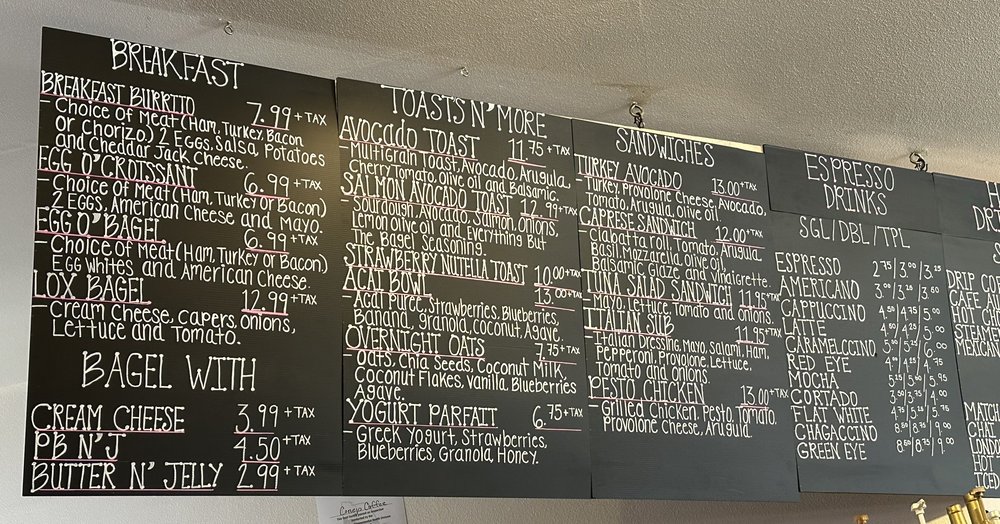 BREAKFAST
BREAKFAST BURRITO 7.99 + TAX
- Choice of Meat (Ham, Turkey, Bacon
or Chorizo) 2 Eggs, Salsa, Potatoes
and Cheddar Jack Cheese.
EGG O'CROISSANT 6.99 + TAX
- Choice of Meat (Ham, Turkey or Bacon)
2 Eggs, American Cheese and Mayo.
EGG O'BAGEL 6.99 + TAX
- Choice of Meat (Ham, Turkey or Bacon)
Egg Whites and American Cheese.
LOX BAGEL 12.99 + TAX
- Cream Cheese, Capers, Onions,
Lettuce and Tomato.
BAGEL WITH
CREAM CHEESE 3.99 + TAX
PB N'J 4.50 + TAX
BUTTER N' JELLY 2.99 + TAX
TOASTS N' MORE
AVOCADO TOAST 11.75 + TAX
- Multigrain Toast, Avocado, Arugula,
Cherry Tomato, Olive oil and Balsamic.
SALMON AVOCADO TOAST 12.99 + TAX
- Sourdough, Avocado, Salmon, Onions,
Lemon olive oil and Everything But
The Bagel Seasoning.
STRAWBERRY NUTELLA TOAST 10.00 + TAX
ACAI BOWL 13.00 + TAX
- Acai Puree, Strawberries, Blueberries,
Banana, Granola, Coconut, Agave.
OVERNIGHT OATS 7.75 + TAX
- Oats, Chia Seeds, Coconut Milk,
Coconut Flakes, Vanilla, Blueberries
Agave.
YOGURT PARFAIT 6.75 + TAX
- Greek Yogurt, Strawberries,
Blueberries, Granola, Honey.
SANDWICHES
TURKEY AVOCADO 13.00 + TAX
- Turkey, Provolone Cheese, Avocado,
Tomato, Arugula, olive oil.
CAPRESE SANDWICH 12.00 + TAX
- Ciabatta roll, Tomato, Arugula
Basil, Mozzarella, olive oil,
Balsamic, Glaze and Vinaigrette.
TUNA SALAD SANDWICH 11.95 + TAX
- Mayo, Lettuce, Tomato and onions.
ITALIAN SUB 11.95 + TAX
- Italian Dressing, Mayo, Salami, Ham,
Pepperoni, Provolone, Lettuce,
Tomato and onions.
PESTO CHICKEN 13.00 + TAX
- Grilled Chicken, Pesto, Tomato,
Provolone Cheese, Arugula
ESPRESSO
DRINKS
SGL/DBL/TPL
ESPRESSO 2.75/3.00/3.25
AMERICANO 3.00/3.25/3.50
CAPPUCCINO 4.50/4.75/5.00
LATTE 4.50/4.75/5.00
CARAMELCCINO
RED EYE
MOCHA 5.25/5.50/5.95
CORTADO
FLAT WHITE 4.75/5.15/5.50
CHAGACCINO
GREEN EYE 8.50/8.75/9.00
DRIP CO
CAFE AU
HOT CH
STEAME
MEXICAN
MATCH
CHAI
LONDO
HOT
ICED
Crevejo Coffee